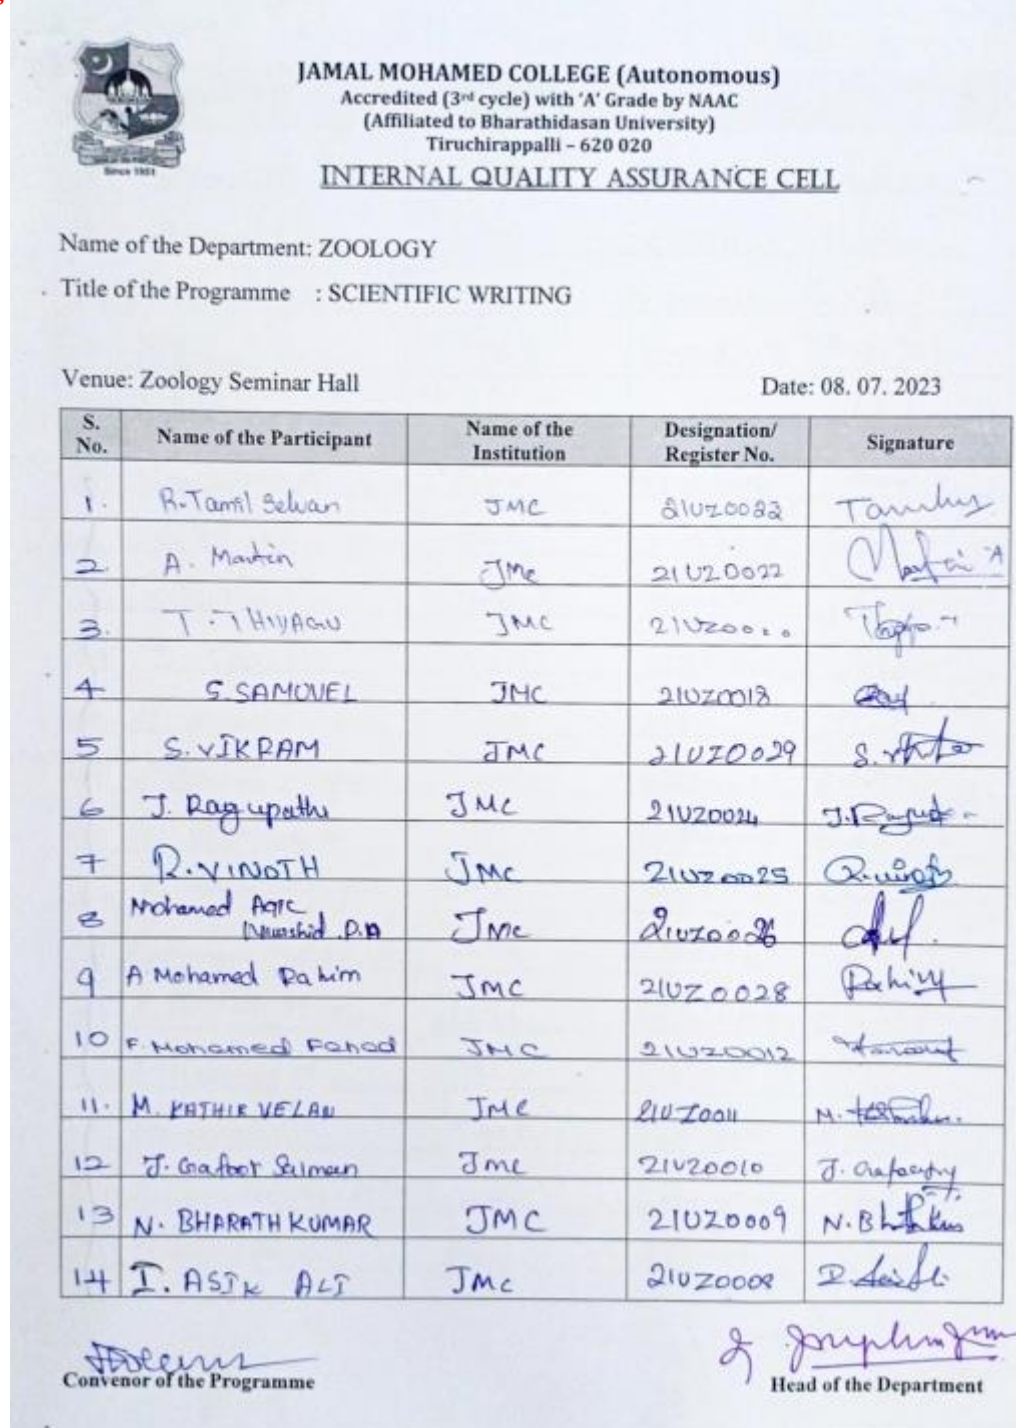 JAMAL MOHAMED COLLEGE (Autonomous)
Accredited (3rd cycle) with 'A' Grade by NAAC
(Affiliated to Bharathidasan University)
Tiruchirappalli – 620 020
Since 1951
INTERNAL QUALITY ASSURANCE CELL
Name of the Department: ZOOLOGY
Title of the Programme : SCIENTIFIC WRITING
Venue: Zoology Seminar Hall Date: 08. 07. 2023
S. No. Name of the Participant Name of the Institution Designation/ Register No. Signature
1. R. Tamil Selvan JMC
2. A. Martin JMC 21UZ0022
3. T. THIYAGU JMC
4 S. SAMUVEL JMC 21UZ0018
5 S. VIKRAM JMC 21UZ0029
6 J. Ragupathi JMC 21UZ0024 J.
7 R. VINOTH JMC 21UZ0025
8 Mohamed
JMC
9 A Mohamed Rahim JMC 21UZ0028 Rahim
10 F. Mohamed Fahad JMC 21UZ0012
11. M. KATHIR VELAN JMC 21UZ0011 M.
12 J. Gafoor Salman JMC 21UZ0010 J.
13 N. BHARATH KUMAR JMC 21UZ0009 N.
14 I. ASIK ALI JMC 21UZ0008
Convenor of the Programme Head of the Department